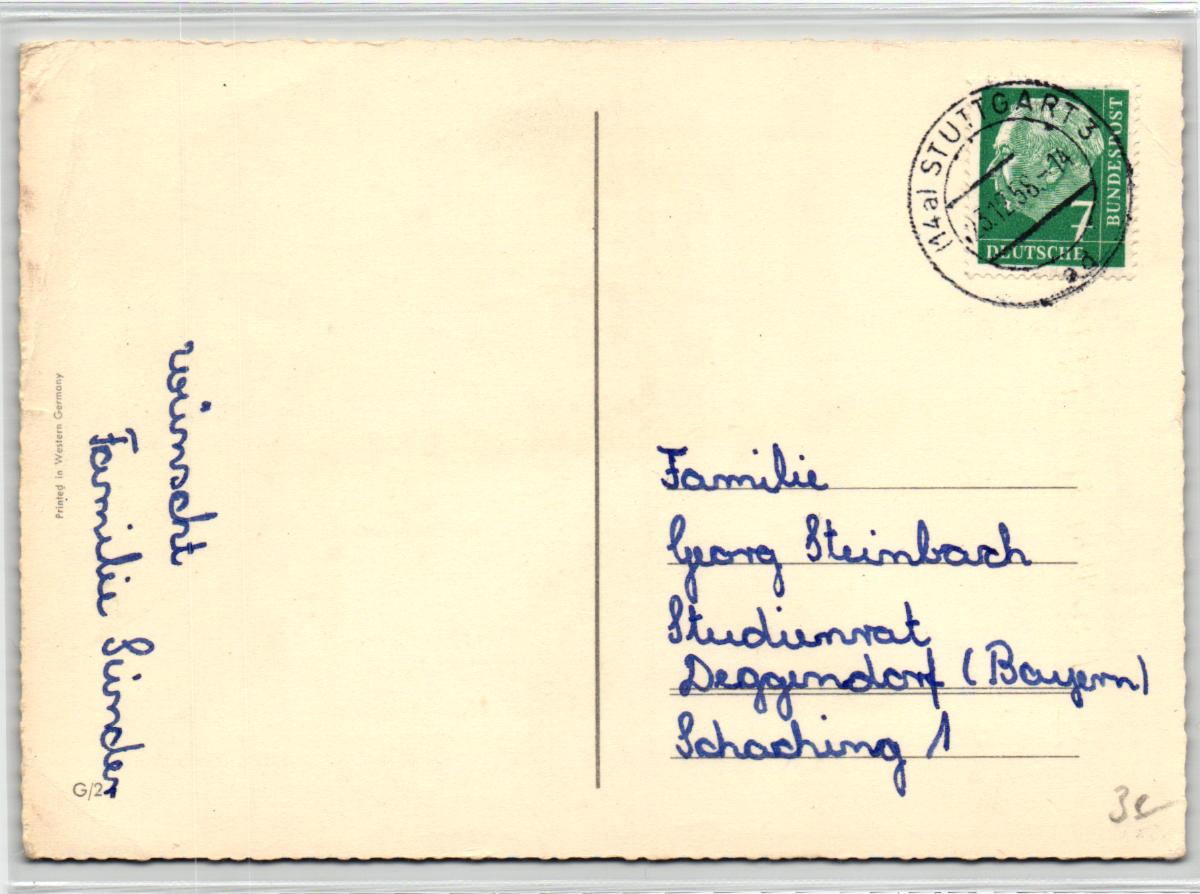 wünscht
Familie Sünder
Printed in Western Germany
G/2
(14a) STUTTGART 3
23.12.58.-14
ad
7
DEUTSCHE
BUNDESPOST
Familie
Georg Steinbach
Studienrat
Deggendorf (Bayern)
Schaching 1